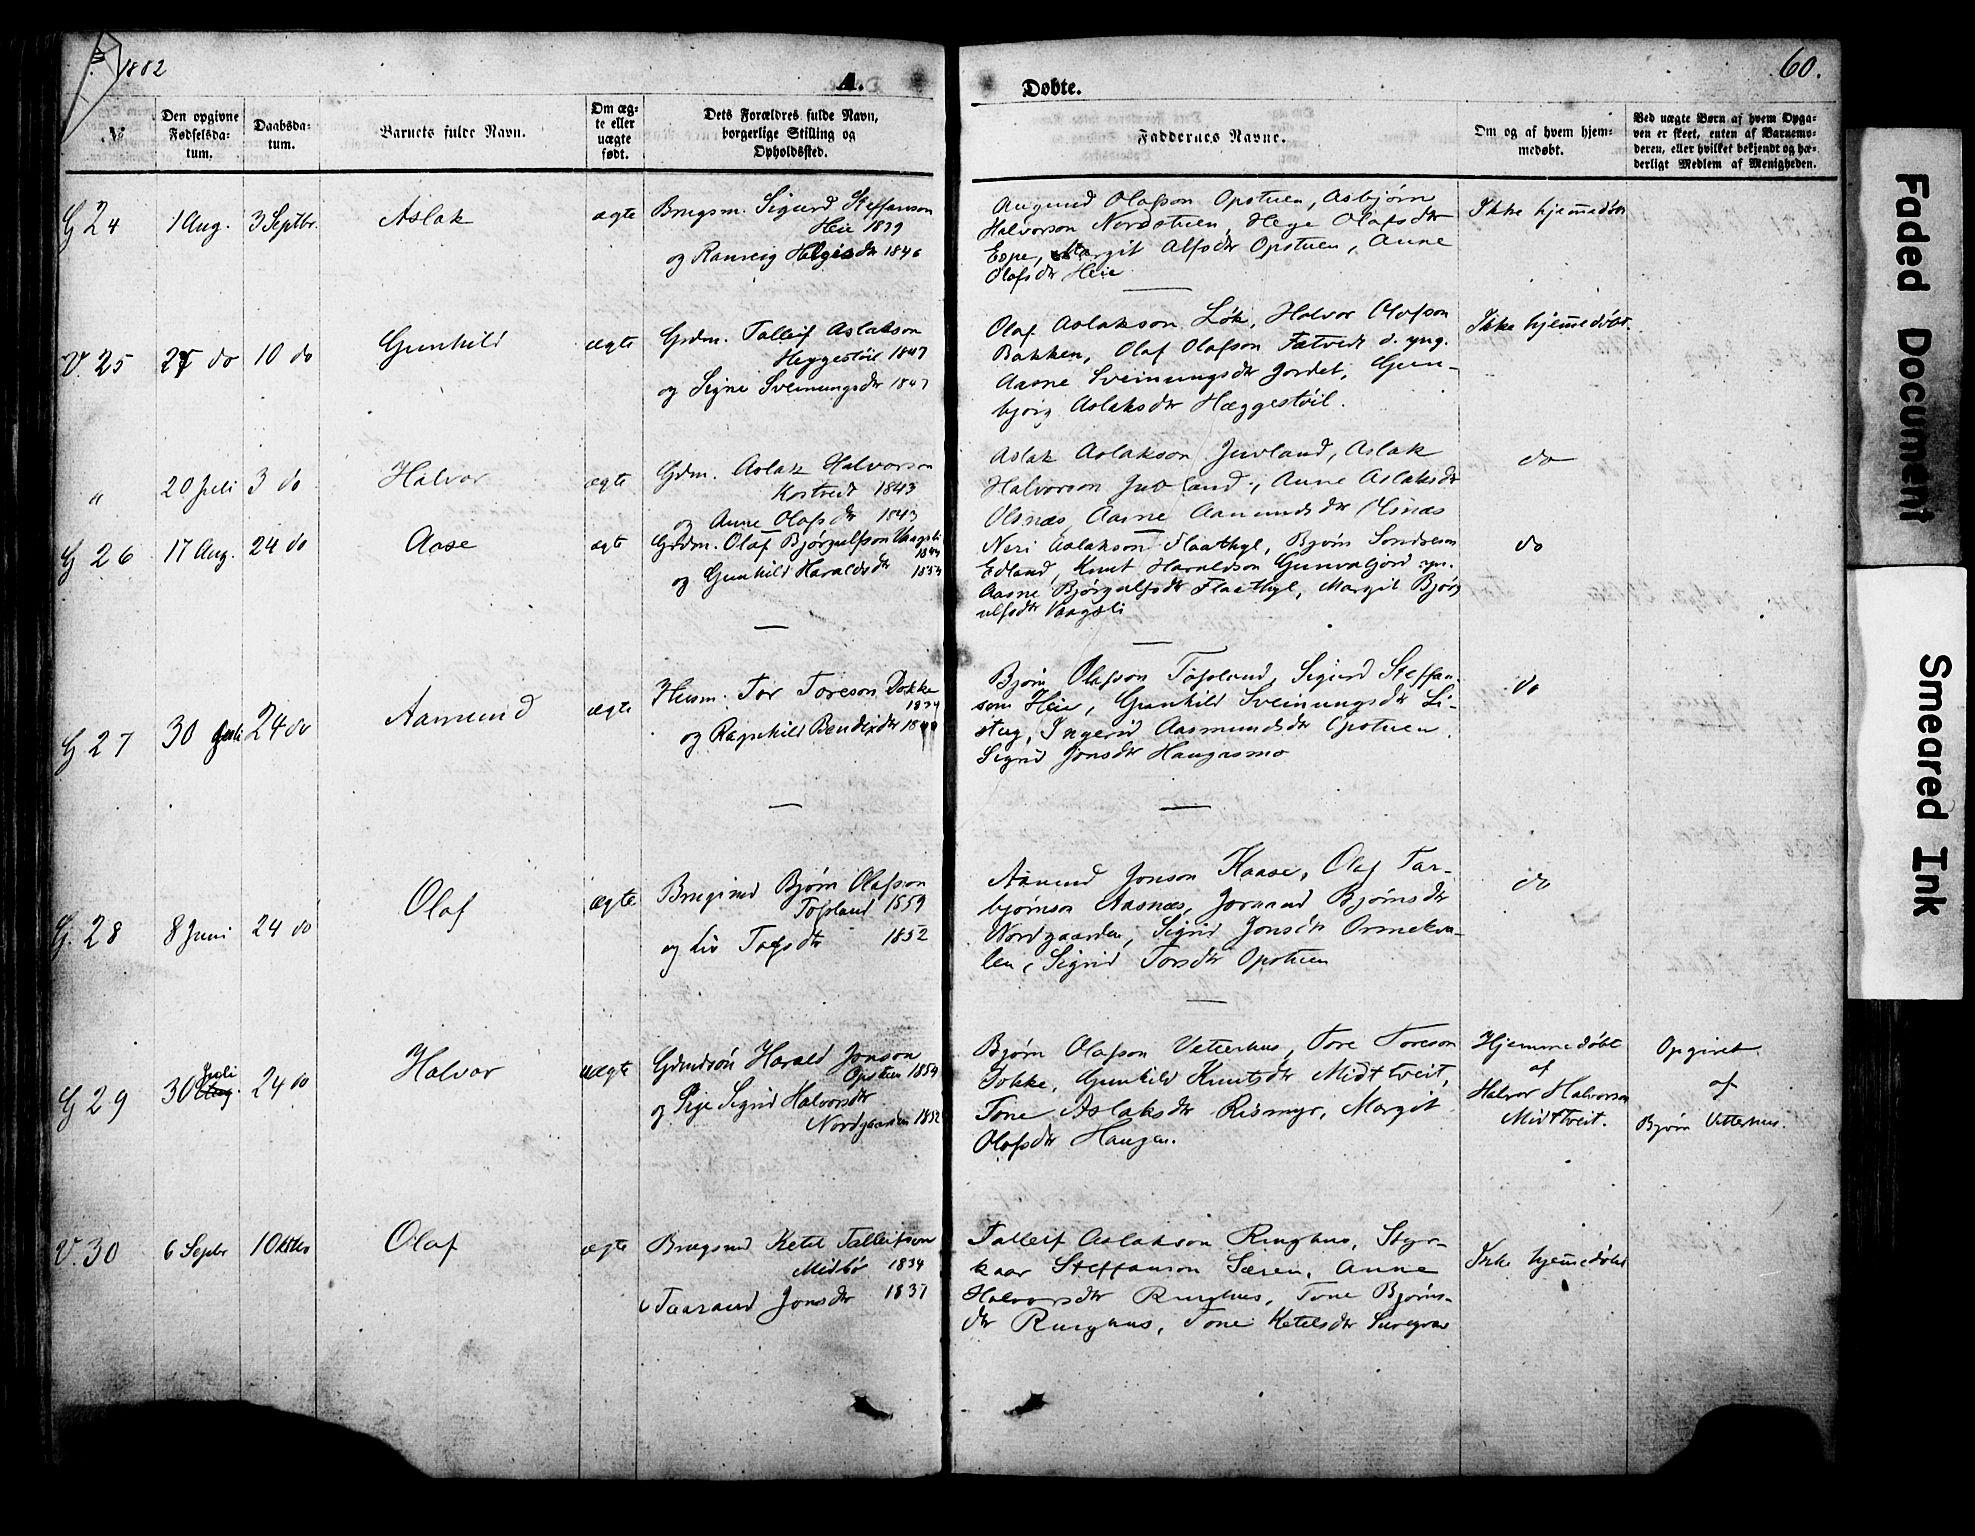 1882
A.
Døbte.
60.
№
Den opgivne Fødselsda-tum.
Daabsda-tum.
Barnets fulde Navn.
Om æg-te eller uægte født.
Dets Forældres fulde Navn, borgerlige Stilling og Opholdssted.
Faddernes Navne.
Om og af hvem hjem-medøbt.
Ved uægte Børn af hvem Opga-ven er skeet, enten af Barnemo-deren, eller hvilket bekjendt og hæ-derligt Medlem af Menigheden.
G 24 1 Aug. 3 Septbr. Aslak ægte
Brugsm. Sigurd Steffanson
Heie 1839
og Ranveig Helgesdtr 1846
Aamund Olafson Opstuen, Asbjørn
Halvorson Nordstuen, Hege Olafsdtr
Espe, Margit Alfsdtr Opstuen, Anne
Olafsdtr Heie
Ikke hjemmedøbt
V. 25 27 do 10 do Gunhild ægte
Grdm. Talleif Aslakson
Heggestøil 1847
og Signe Sveinungsdtr 1847
Olaf Aslakson Løk, Halvor Olafson
Bakken, Olaf Olafson Fætvedt d. yng.
Aasne Sveinungsdtr Jordet, Gun-
bjørg Aslaksdtr Hæggestøil.
Ikke hjemmedøbt.
" 20 Juli 3 do Halvor ægte
Grdm. Aslak Halvorson
Kostvedt 1843
og Anne Olafsdtr 1843
Aslak Aslakson Juvland, Aslak
Halvorson Juvland, Anne Aslaksdtr
Olsnæs, Aasne Aamundsdtr Olsnæs
do
G 26 17 Aug. 24 do Aase ægte
Grdm. Olaf Bjørgulfson Vaagsli
1844
og Gunhild Haraldsdtr 1854
Neri Aslakson Flaathyl, Bjørn Sondreson
Edland, Knut Haraldson Gunvaljord yn.
Aasne Bjørgulfsdtr Flaathyl, Margit Bjørg
ulfsdtr Vaagsli
do
G 27 30 Juli 24 do Aamund ægte
Husm. Tor Toreson Dokke
1834
og Ragnhild Bendixdtr
Bjørn Olafson Tofsland, Sigurd Steffan-
son Heie, Gunhild Sveinungsdtr Li-
stug, Ingerid Aasmundsdtr Opstuen.
Sigrid Jonsdtr Haugasmo
do
G. 28 8 Juni 24 do Olaf ægte
Brugsmd Bjørn Olafson
Tofsland 1859
og Liv Torsdtr 1852
Aamund Jonson Kaase, Olaf Tar-
bjørnson Aasnæs, Joraand Bjørnsdtr
Nordgaarden, Sigrid Jonsdtr Ormekva-
len, Sigrid Torsdtr Opstuen
do
G 29 30 Juli Aug. 24 do Halvor uægte
Grdmdsøn Harald Jonson
Opstuen 1854
og Pige Sigrid Halvorsdtr
Nordgaarden 1852
Bjørn Olafson Vetterhus, Tore Toreson
Dokke, Gunhild Knutsdtr Midttveit,
Tone Aslaksdtr Rismyr, Margit
Olafsdtr Haugen.
Hjemmedøbt
af
Halvor Halvorson
Midttveit.
Opgivet
af
Bjørn Vetterhus.
V. 30 6 Septbr 1 Oktbr Olaf ægte
Brugsmd Ketil Talleifson
Midbø 1834
& Taaraand Jonsdtr 1837
Talleif Aslakson Ringhus, Styr-
kaar Steffanson Sæsen, Anne
Halvorsdtr Ringhus, Tone Bjørns-
dtr Ringhus, Tone Ketilsdtr
Ikke hjemmedøbt
Faded Document
Smeared Ink